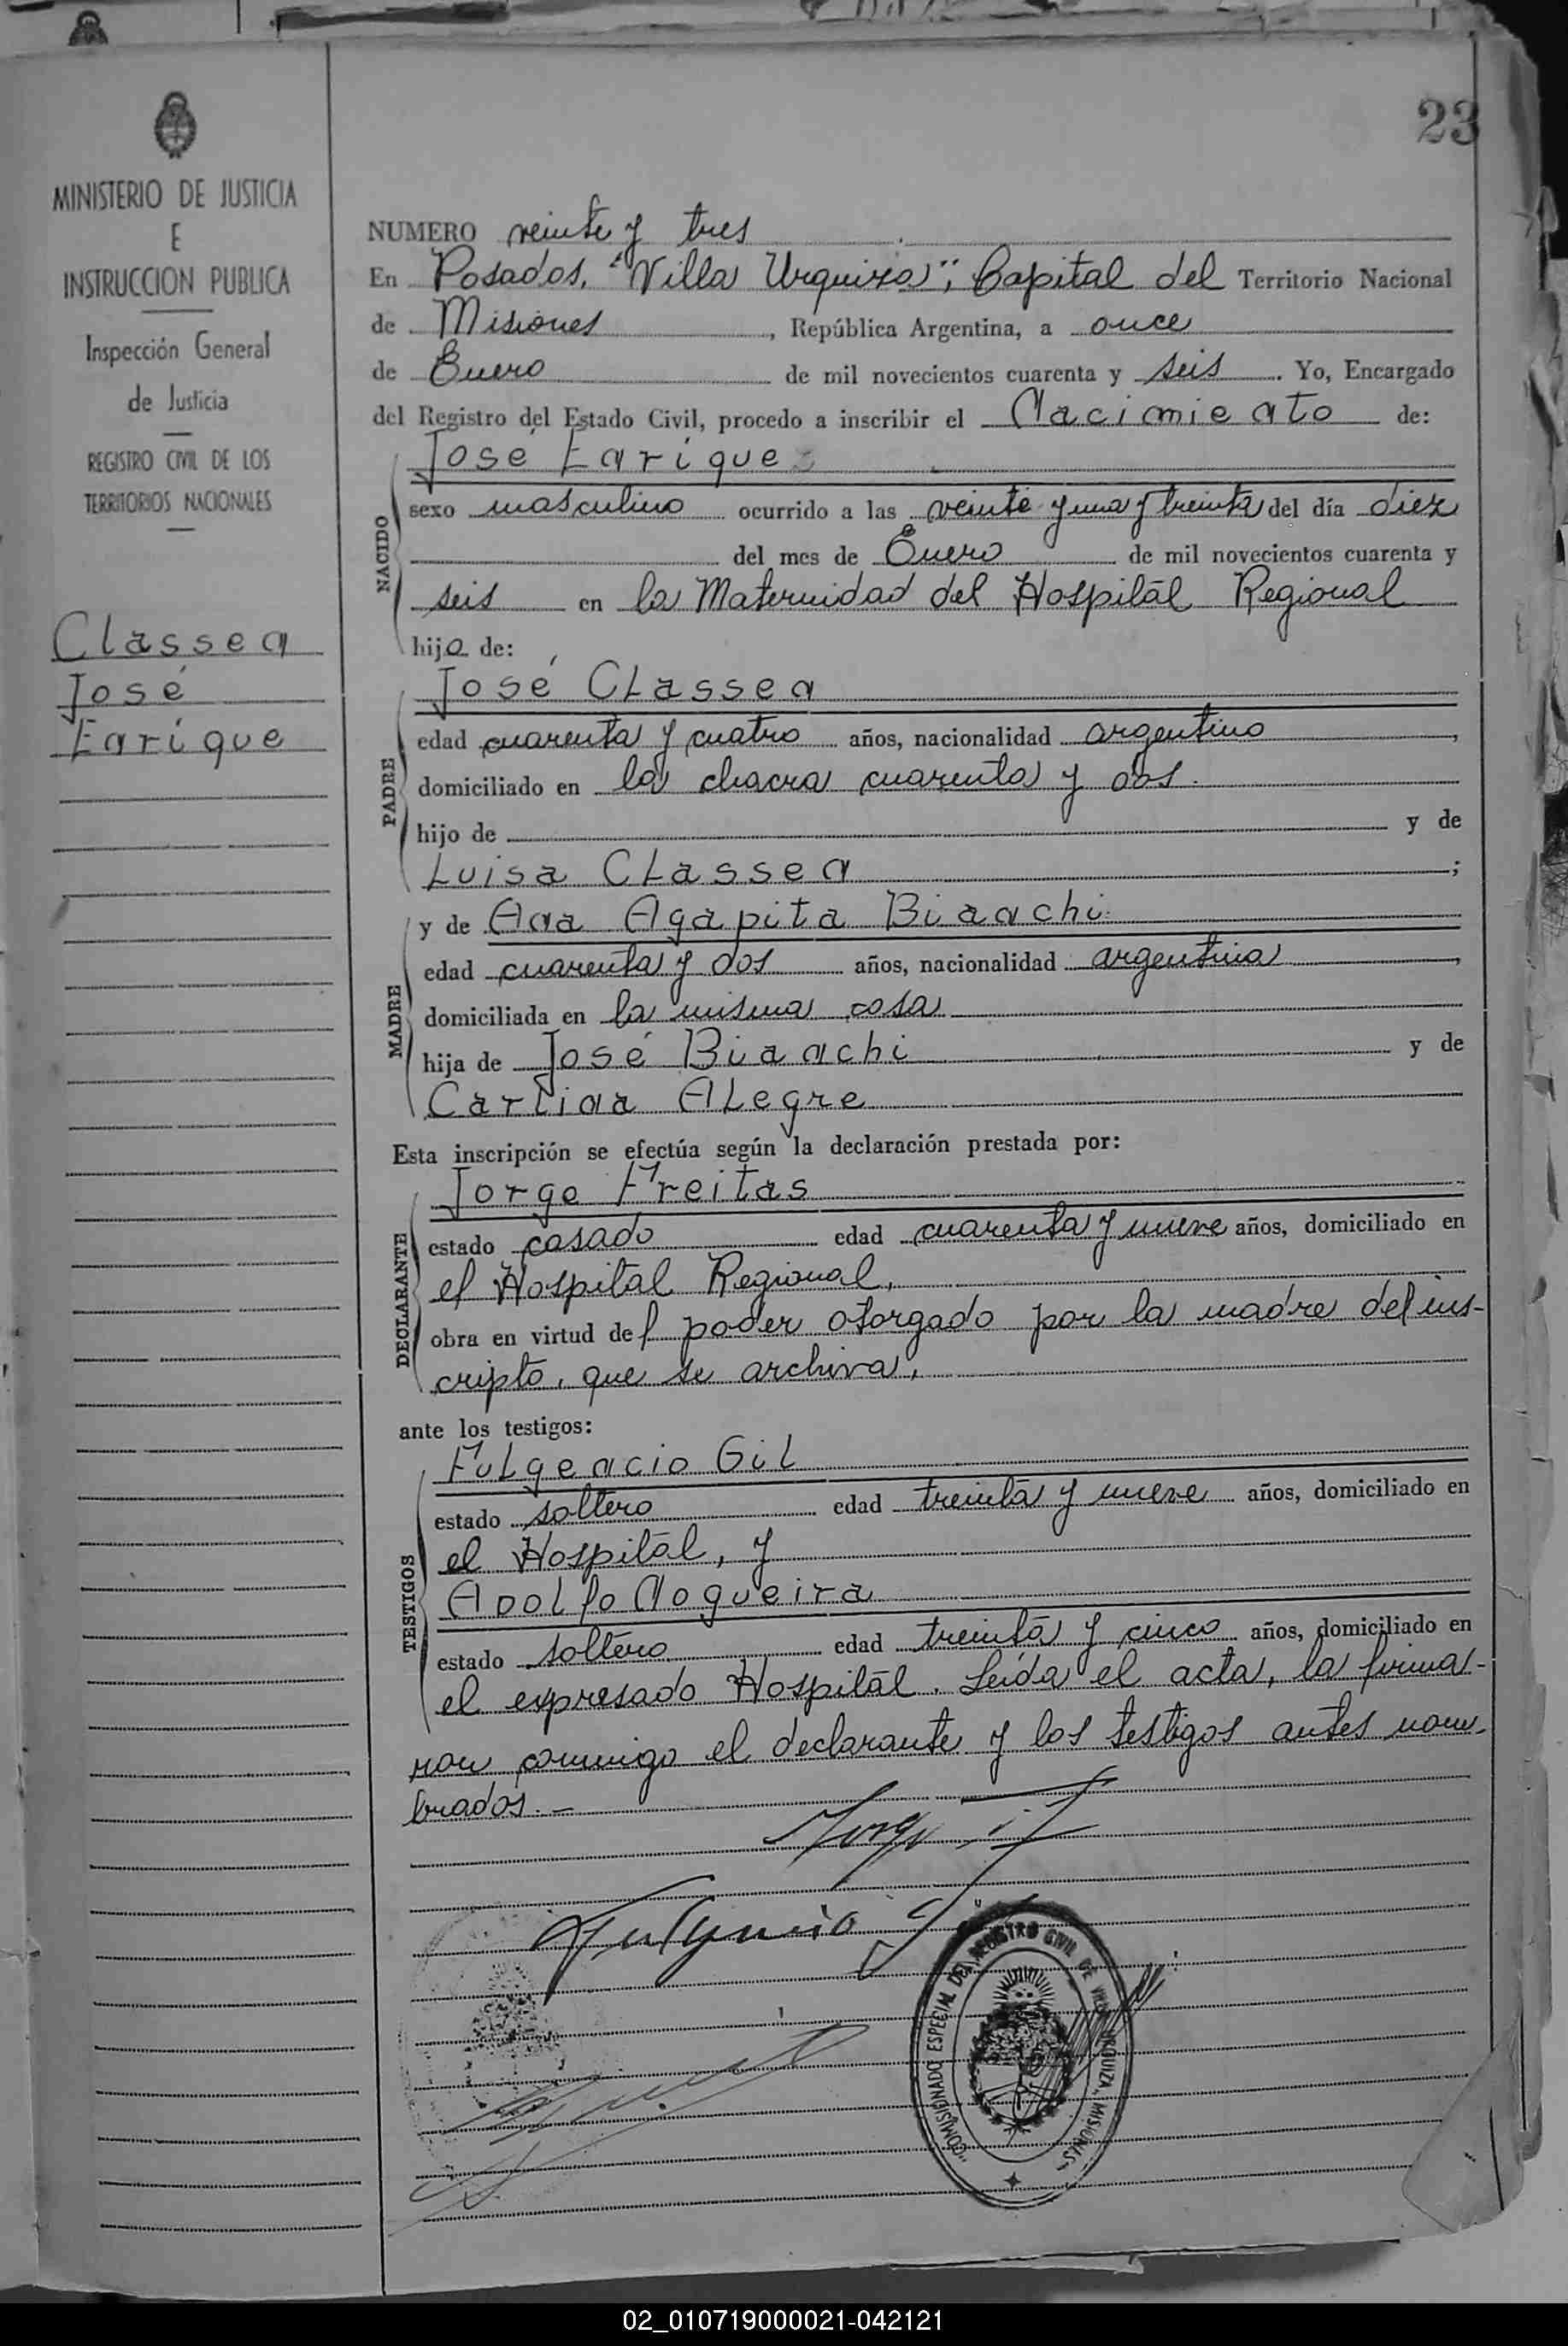 23
MINISTERIO DE JUSTICIA
E
INSTRUCCION PUBLICA
Inspección General
de Justicia
REGISTRO CIVIL DE LOS
TERRITORIOS NACIONALES
Classen
José
Enrique
NUMERO veinte y tres
En Posadas, "Villa Urquiza", Capital del Territorio Nacional
de Misiones, República Argentina, a once
de Enero de mil novecientos cuarenta y seis. Yo, Encargado
del Registro del Estado Civil, procedo a inscribir el Nacimiento de:
NACIDO
José Enrique
sexo masculino ocurrido a las veinte y una y treinta del día diez
del mes de Enero de mil novecientos cuarenta y
seis en la Maternidad del Hospital Regional
hijo de:
PADRE
José Classen
edad cuarenta y cuatro años, nacionalidad argentino,
domiciliado en la chacra cuarenta y dos.
hijo de y de
Luisa Classen;
MADRE
y de Ana Agapita Bianchi
edad cuarenta y dos años, nacionalidad argentina,
domiciliada en la misma casa
hija de José Bianchi y de
Carlina Alegre
Esta inscripción se efectúa según la declaración prestada por:
DECLARANTE
Jorge Freitas
estado casado edad cuarenta y nueve años, domiciliado en
el Hospital Regional,
obra en virtud del poder otorgado por la madre del ins-
cripto, que se archiva,
ante los testigos:
TESTIGOS
Fulgencio Gil
estado soltero edad treinta y nueve años, domiciliado en
el Hospital, y
Adolfo Nogueira
estado soltero edad treinta y cinco años, domiciliado en
el expresado Hospital. Leída el acta, la firma-
ron conmigo el declarante y los testigos antes nom-
brados.-
Fulgencio Gil
"COMISIONADO ESPECIAL DEL REGISTRO CIVIL DE VILLA URQUIZA - MISIONES"
02_010719000021-042121